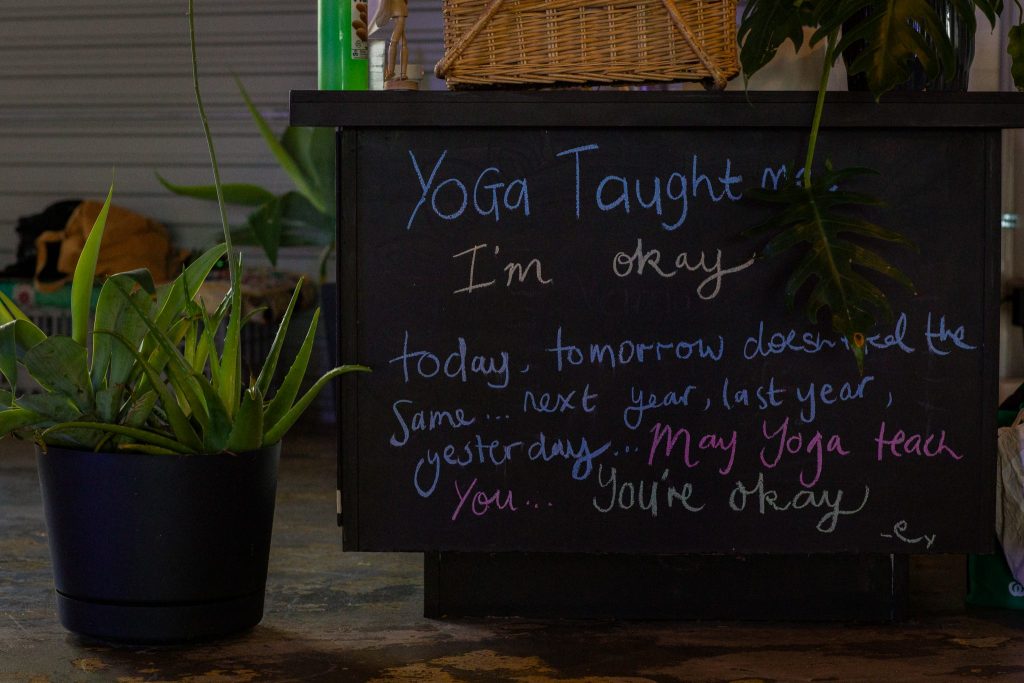 Yoga Taught me
I'm okay
today, tomorrow doesn't the
Same... next year, last year,
yesterday... May Yoga teach
You... You're okay
-ex